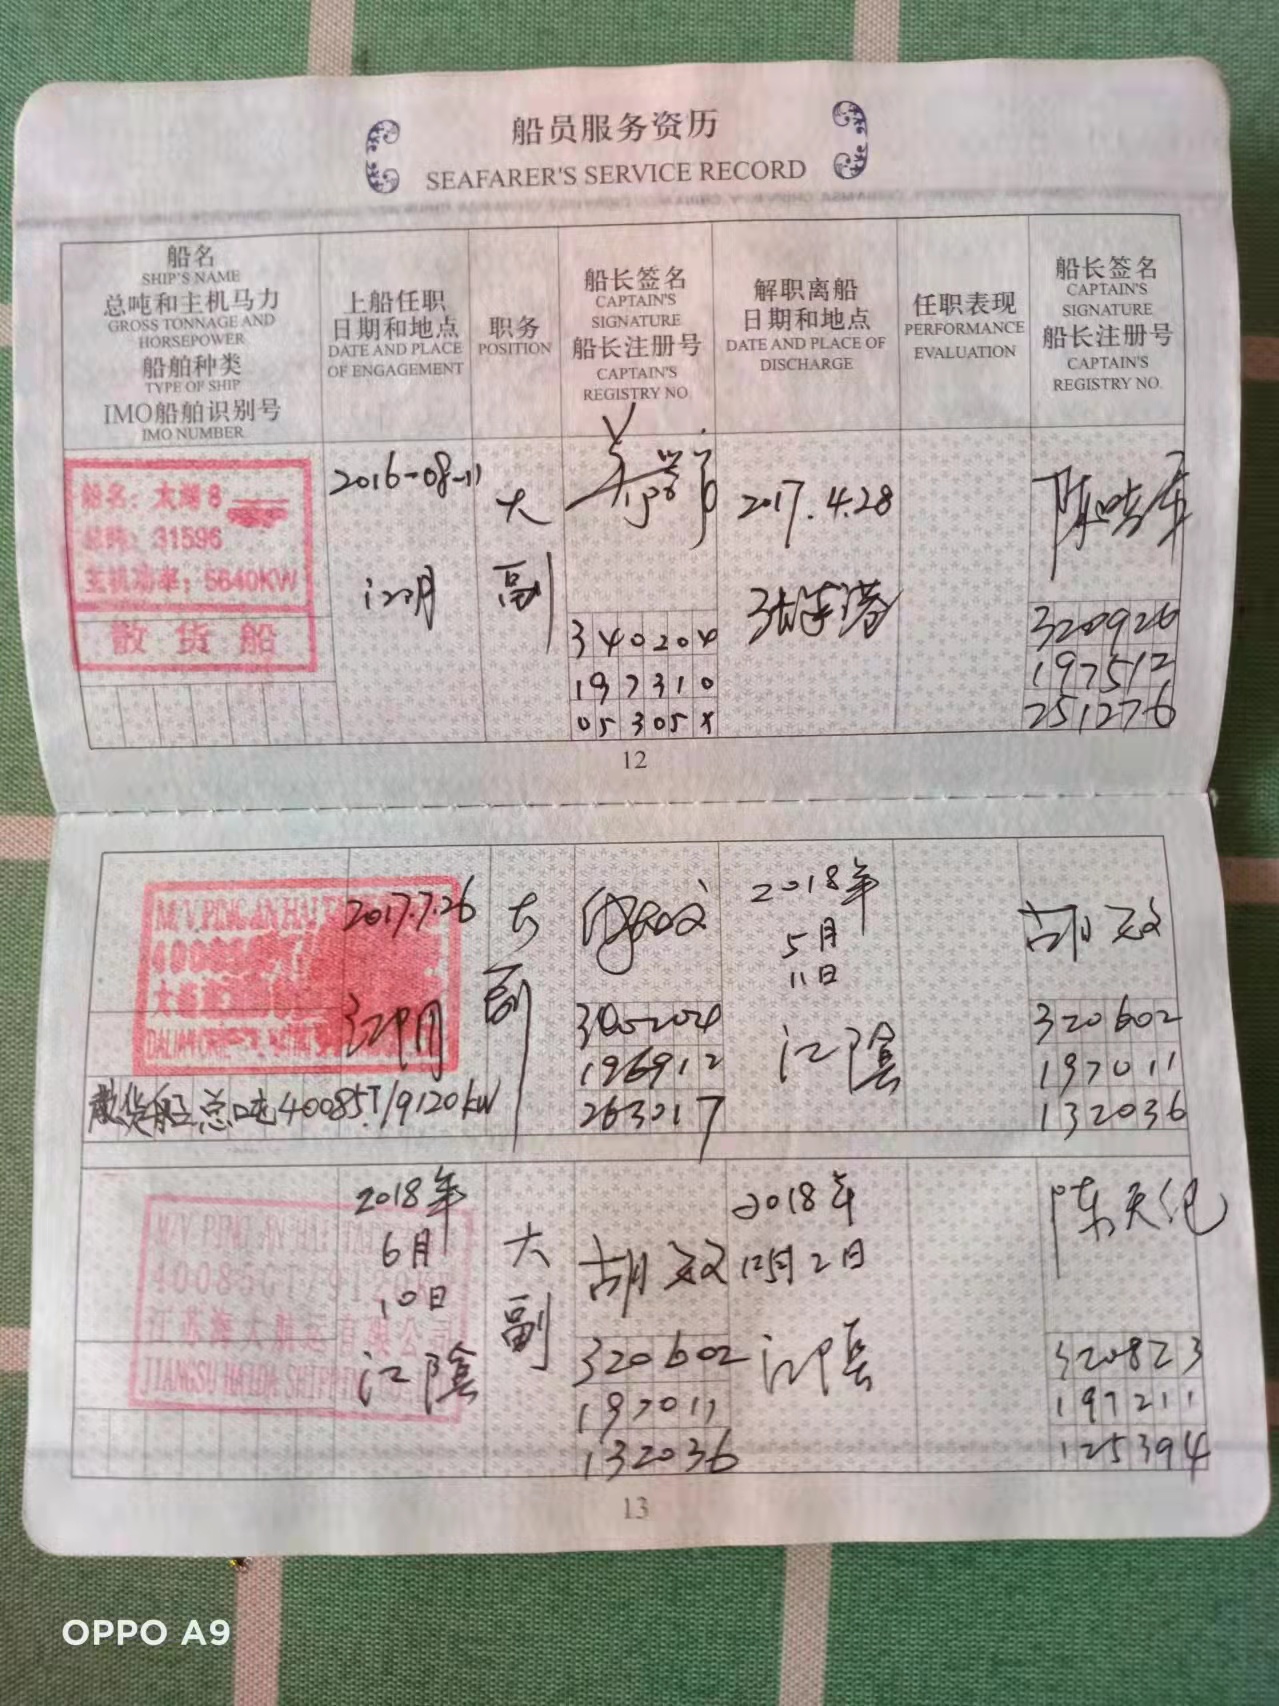 船员服务资历
SEAFARER'S SERVICE RECORD
船名
SHIP'S NAME
总吨和主机马力
GROSS TONNAGE AND
HORSEPOWER
船舶种类
TYPE OF SHIP
IMO船舶识别号
IMO NUMBER
上船任职
日期和地点
DATE AND PLACE
OF ENGAGEMENT
职务
POSITION
船长签名
CAPTAIN'S
SIGNATURE
船长注册号
CAPTAIN'S
REGISTRY NO.
解职离船
日期和地点
DATE AND PLACE OF
DISCHARGE
任职表现
PERFORMANCE
EVALUATION
船长签名
CAPTAIN'S
SIGNATURE
船长注册号
CAPTAIN'S
REGISTRY NO.
船名：太湖8
总吨：31596
主机功率：5640KW
散货船
2016-08-11
江阴
大
副
340204
197310
05305X
2017.4.28
320926
197512
251276
12
M/V.PING AN HAI
2017.7.26
江阴
散货船 总吨40085T/9120KW
大
副
340204
196912
263017
2018年
5月
11日
江陰
胡
320602
197011
132036
M/V.PING AN HAI
江苏海大航运有限公司
JIANGSU HAIDA SHIPPING
2018年
6月
10日
江陰
大
副
胡
320602
197011
132036
2018年
12月2日
江阴
陈天
320823
197211
125394
13
OPPO A9